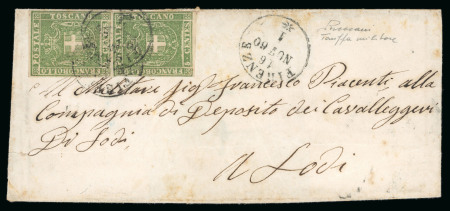 TOSCANO TOSCANO
FIRENZE
16
NOV 60
1
Tariffa militare
Al Militare Sig. Francesco Piacenti, alla
Compagnia di Deposito dei Cavalleggeri
Di Lodi
A Lodi